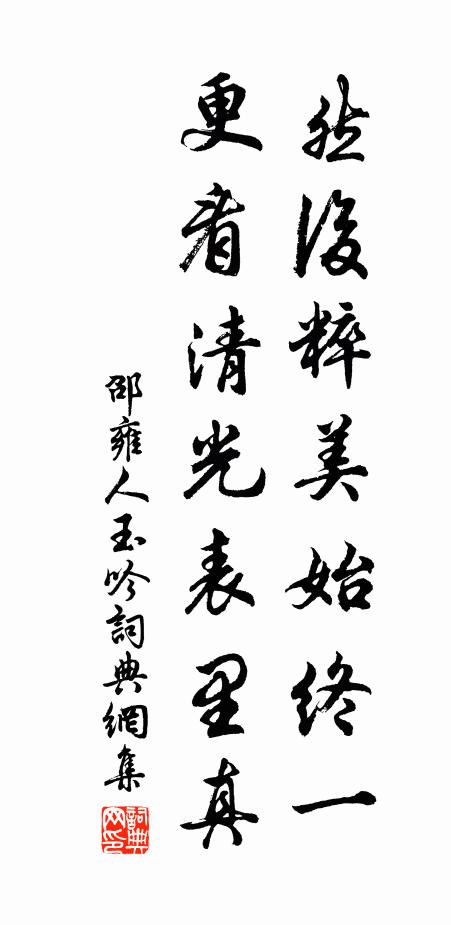 然後粹美始終一
更看清光表里真
邵雍人玉吟詞典網集
詞典网印